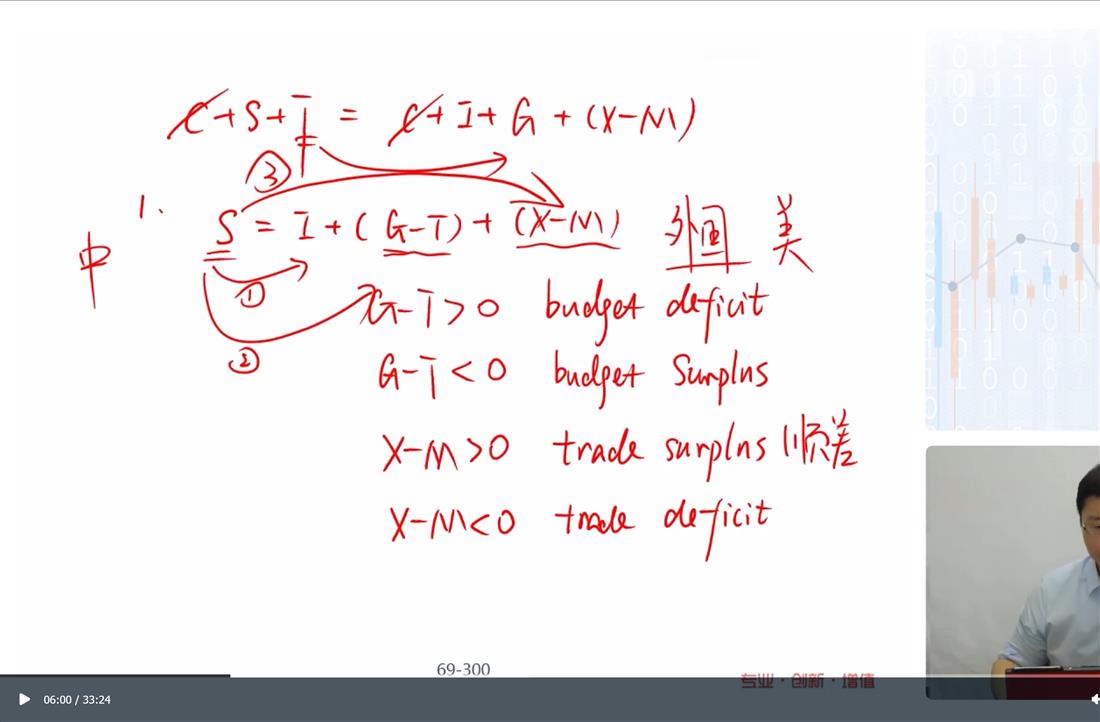 C+S+T = C+I+G+(X-M)
③
1. S = I+(G-T)+(X-M) 外国 美
中
① G-T>0 budget deficit
②
G-T<0 budget Surplns
X-M>0 trade surplns 顺差
X-M<0 trade deficit
69-300
专业·创新·增值
06:00 / 33:24